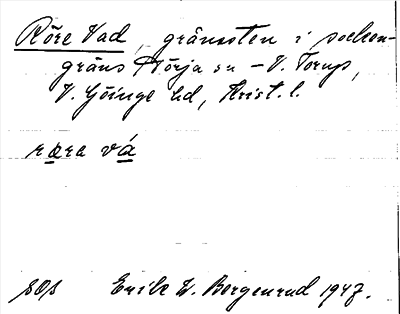 Röre Vad, gränssten i socken-
gräns Nörja sn – V. Torup,
V. Göinge hd, Krist. l.
rœra vá
sos Erik W. Bergenrud 1947.